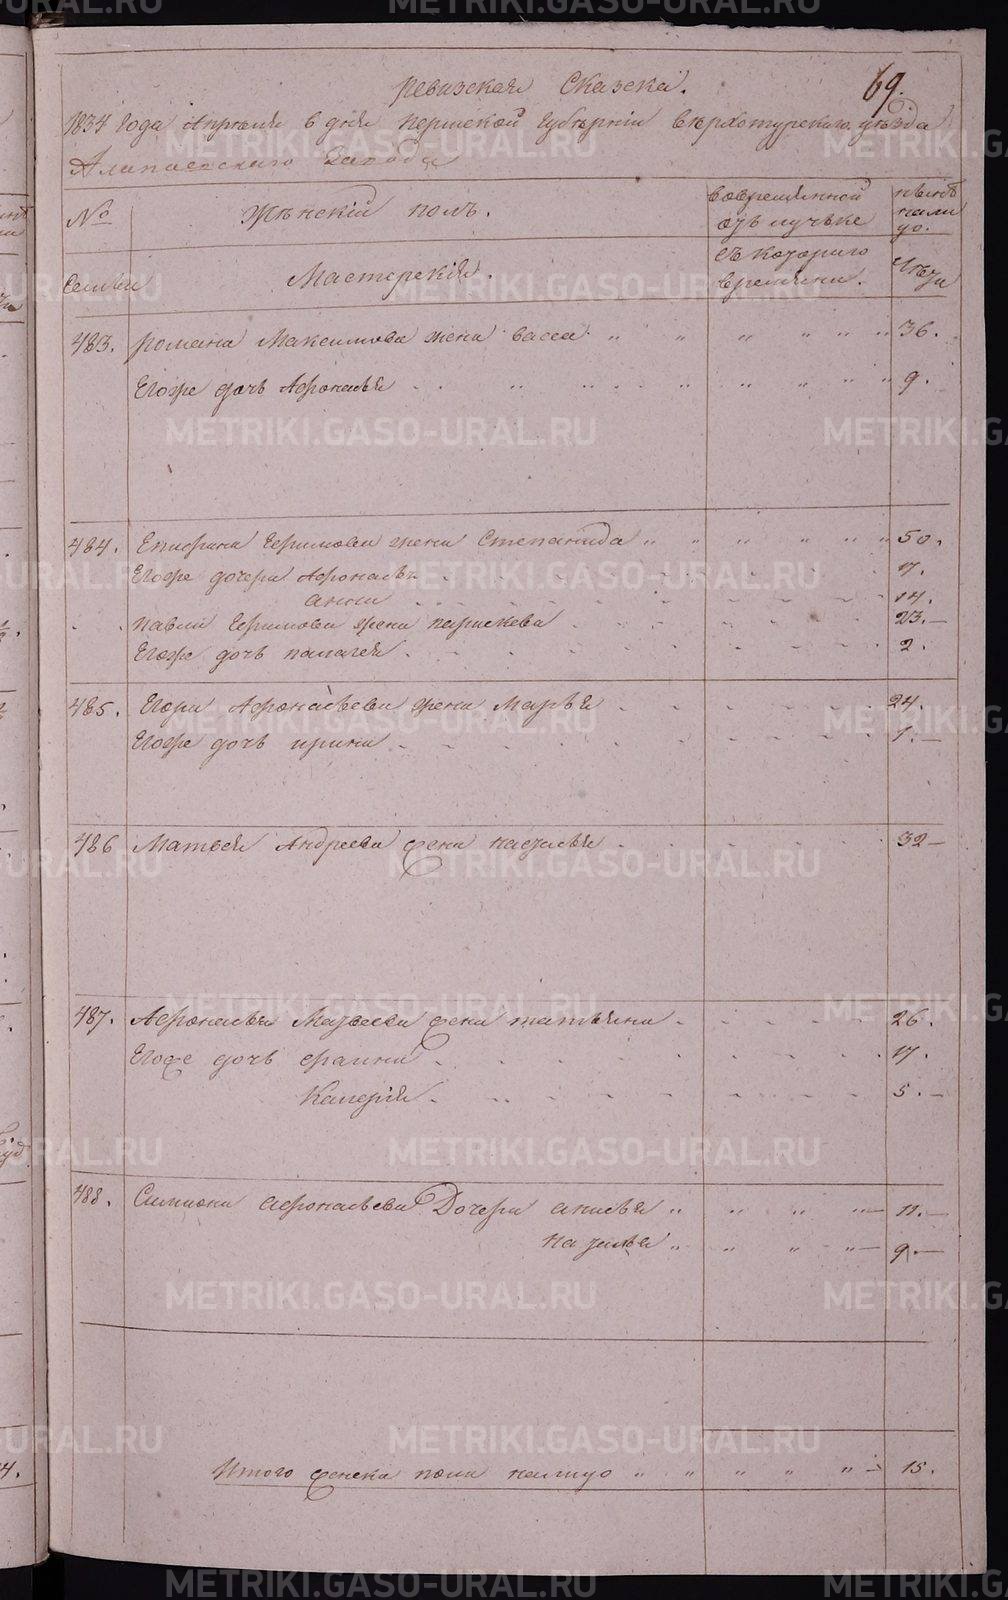 69.
Ревизская Сказска.
1834 года Апреля 6 дня Пермской Губѣрніи Вѣрхотурскаго уѣзда
Алапаевскаго Завода
№ Жѣнскій полъ. вовременной отлучьке нынѣ нали цо.
Семьи Мастерскія. съ котораго времяни. Лѣта
483. Романа Максимова жена Васса 36.
Егоже дочь Афонасья 9.
484. Епифана Ефимова жена Степанида 50.
Егоже дочери Афонасья 17.
анна 14.
Павла Ефимова жена парискева 23.
Егоже дочь палагея 2.
485. Егора Афонасьева жена Марья 24.
Егоже дочь ирина 1.
486 Матвея Андреева жена наталья 32
487. Афонасья Матвеева жена татьяна 26.
Егоже дочь 17.
Калерія 5.
488. Симиона афонасьева Дочери анисья 11.
наталья 9.
Итого женска пола налицо 15.
METRIKI.GASO-URAL.RU